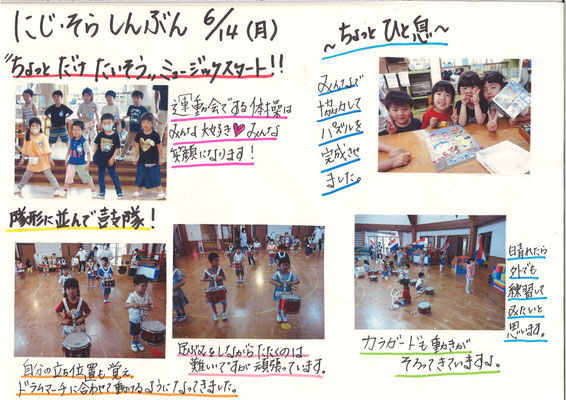 にじ・そらしんぶん 6/14(月)
"ちょっとだけたいそう"ミュージックスタート!!
運動会でする体操は
みんな大好き♥みんな
笑顔になります!
〜ちょっとひと息〜
みんなで
協力して
パズルを
完成させ
ました。
隊形に並んで鼓隊!
自分の立ち位置も覚え、
ドラムマーチに合わせて動けるようになってきました。
足ぶみをしながらたたくのは
難しいですが頑張っています。
カラーガードも動きが
そろってきていますよ。
晴れたら
外でも
練習して
みたいと
思います。